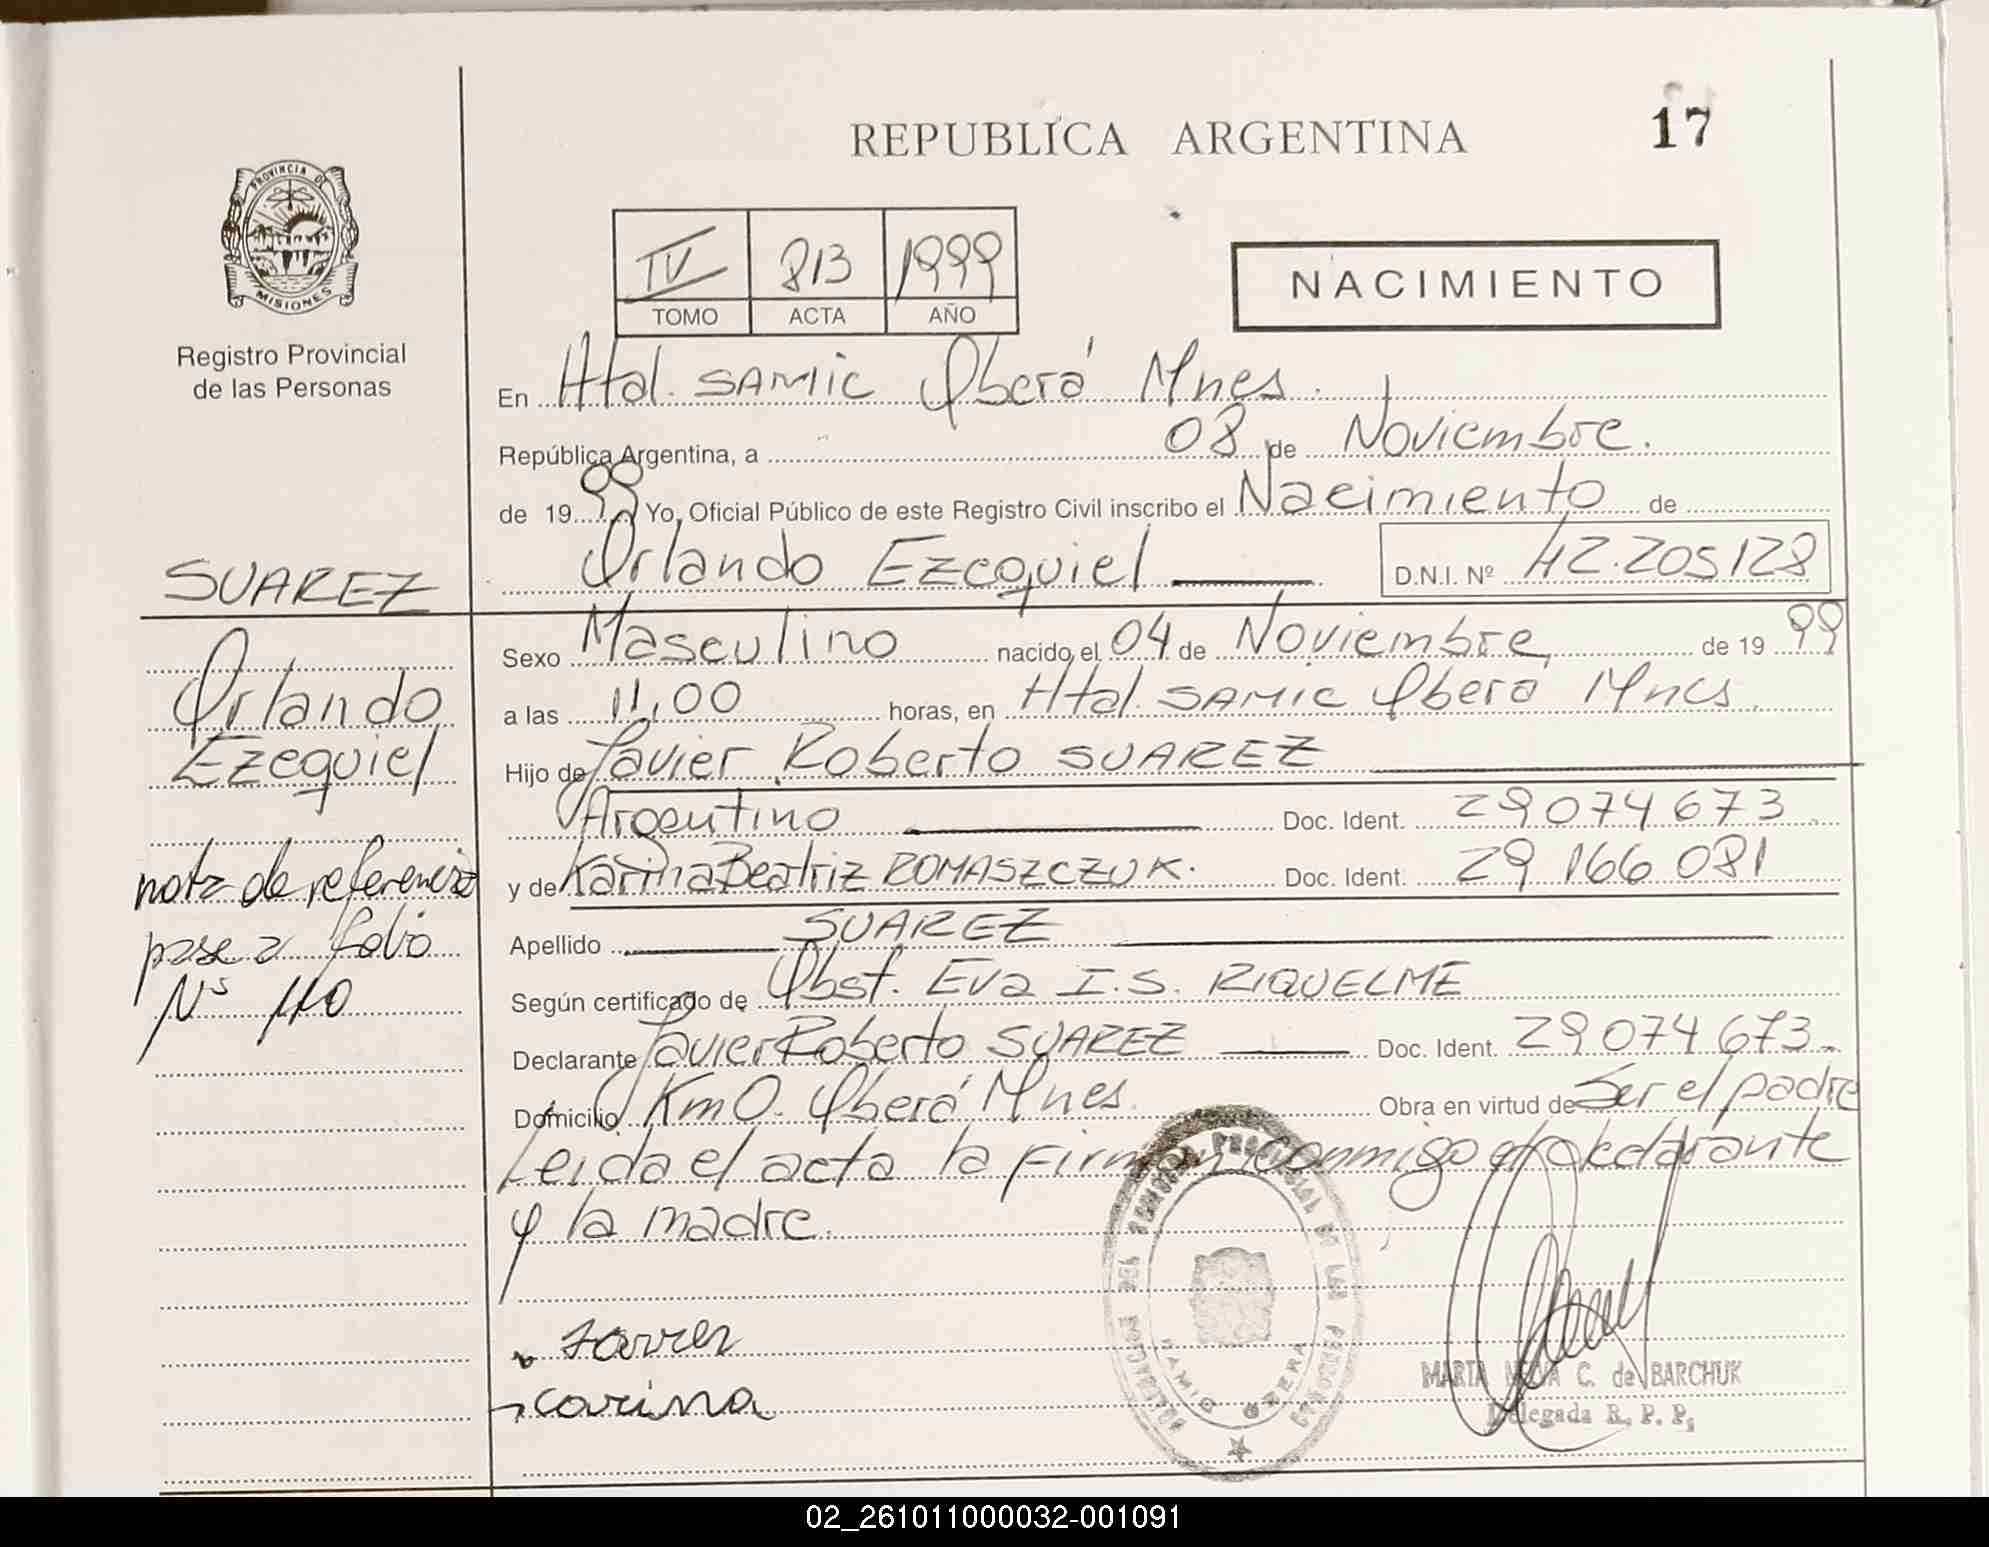 REPUBLICA ARGENTINA
17
PROVINCIA DE
MISIONES
Registro Provincial
de las Personas
IV 813 1999
TOMO ACTA AÑO
NACIMIENTO
En Htal. SAMIC Oberá Mnes.
República Argentina, a 08 de Noviembre.
de 1999 Yo, Oficial Público de este Registro Civil inscribo el Nacimiento de
Orlando Ezequiel D.N.I. Nº 42.205128
SUAREZ
Orlando
Ezequiel
nota de referencia
pase a folio
Nº 110
Sexo Masculino nacido el 04 de Noviembre de 1999
a las 11,00 horas, en Htal. SAMIC Oberá Mnes.
Hijo de Javier Roberto SUAREZ
Argentino Doc. Ident. 29074673
y de Karina Beatriz ROMASZCZUK. Doc. Ident. 29 166 081
Apellido SUAREZ
Según certificado de Obst. Eva I.S. RIQUELME
Declarante Javier Roberto SUAREZ Doc. Ident. 29074673
Domicilio Km 0. Oberá Mnes. Obra en virtud de Ser el padre
Leida el acta la firman conmigo el declarante
y la madre.
carina
MARTA C. de BARCHUK
Delegada R. P. P.
02_261011000032-001091